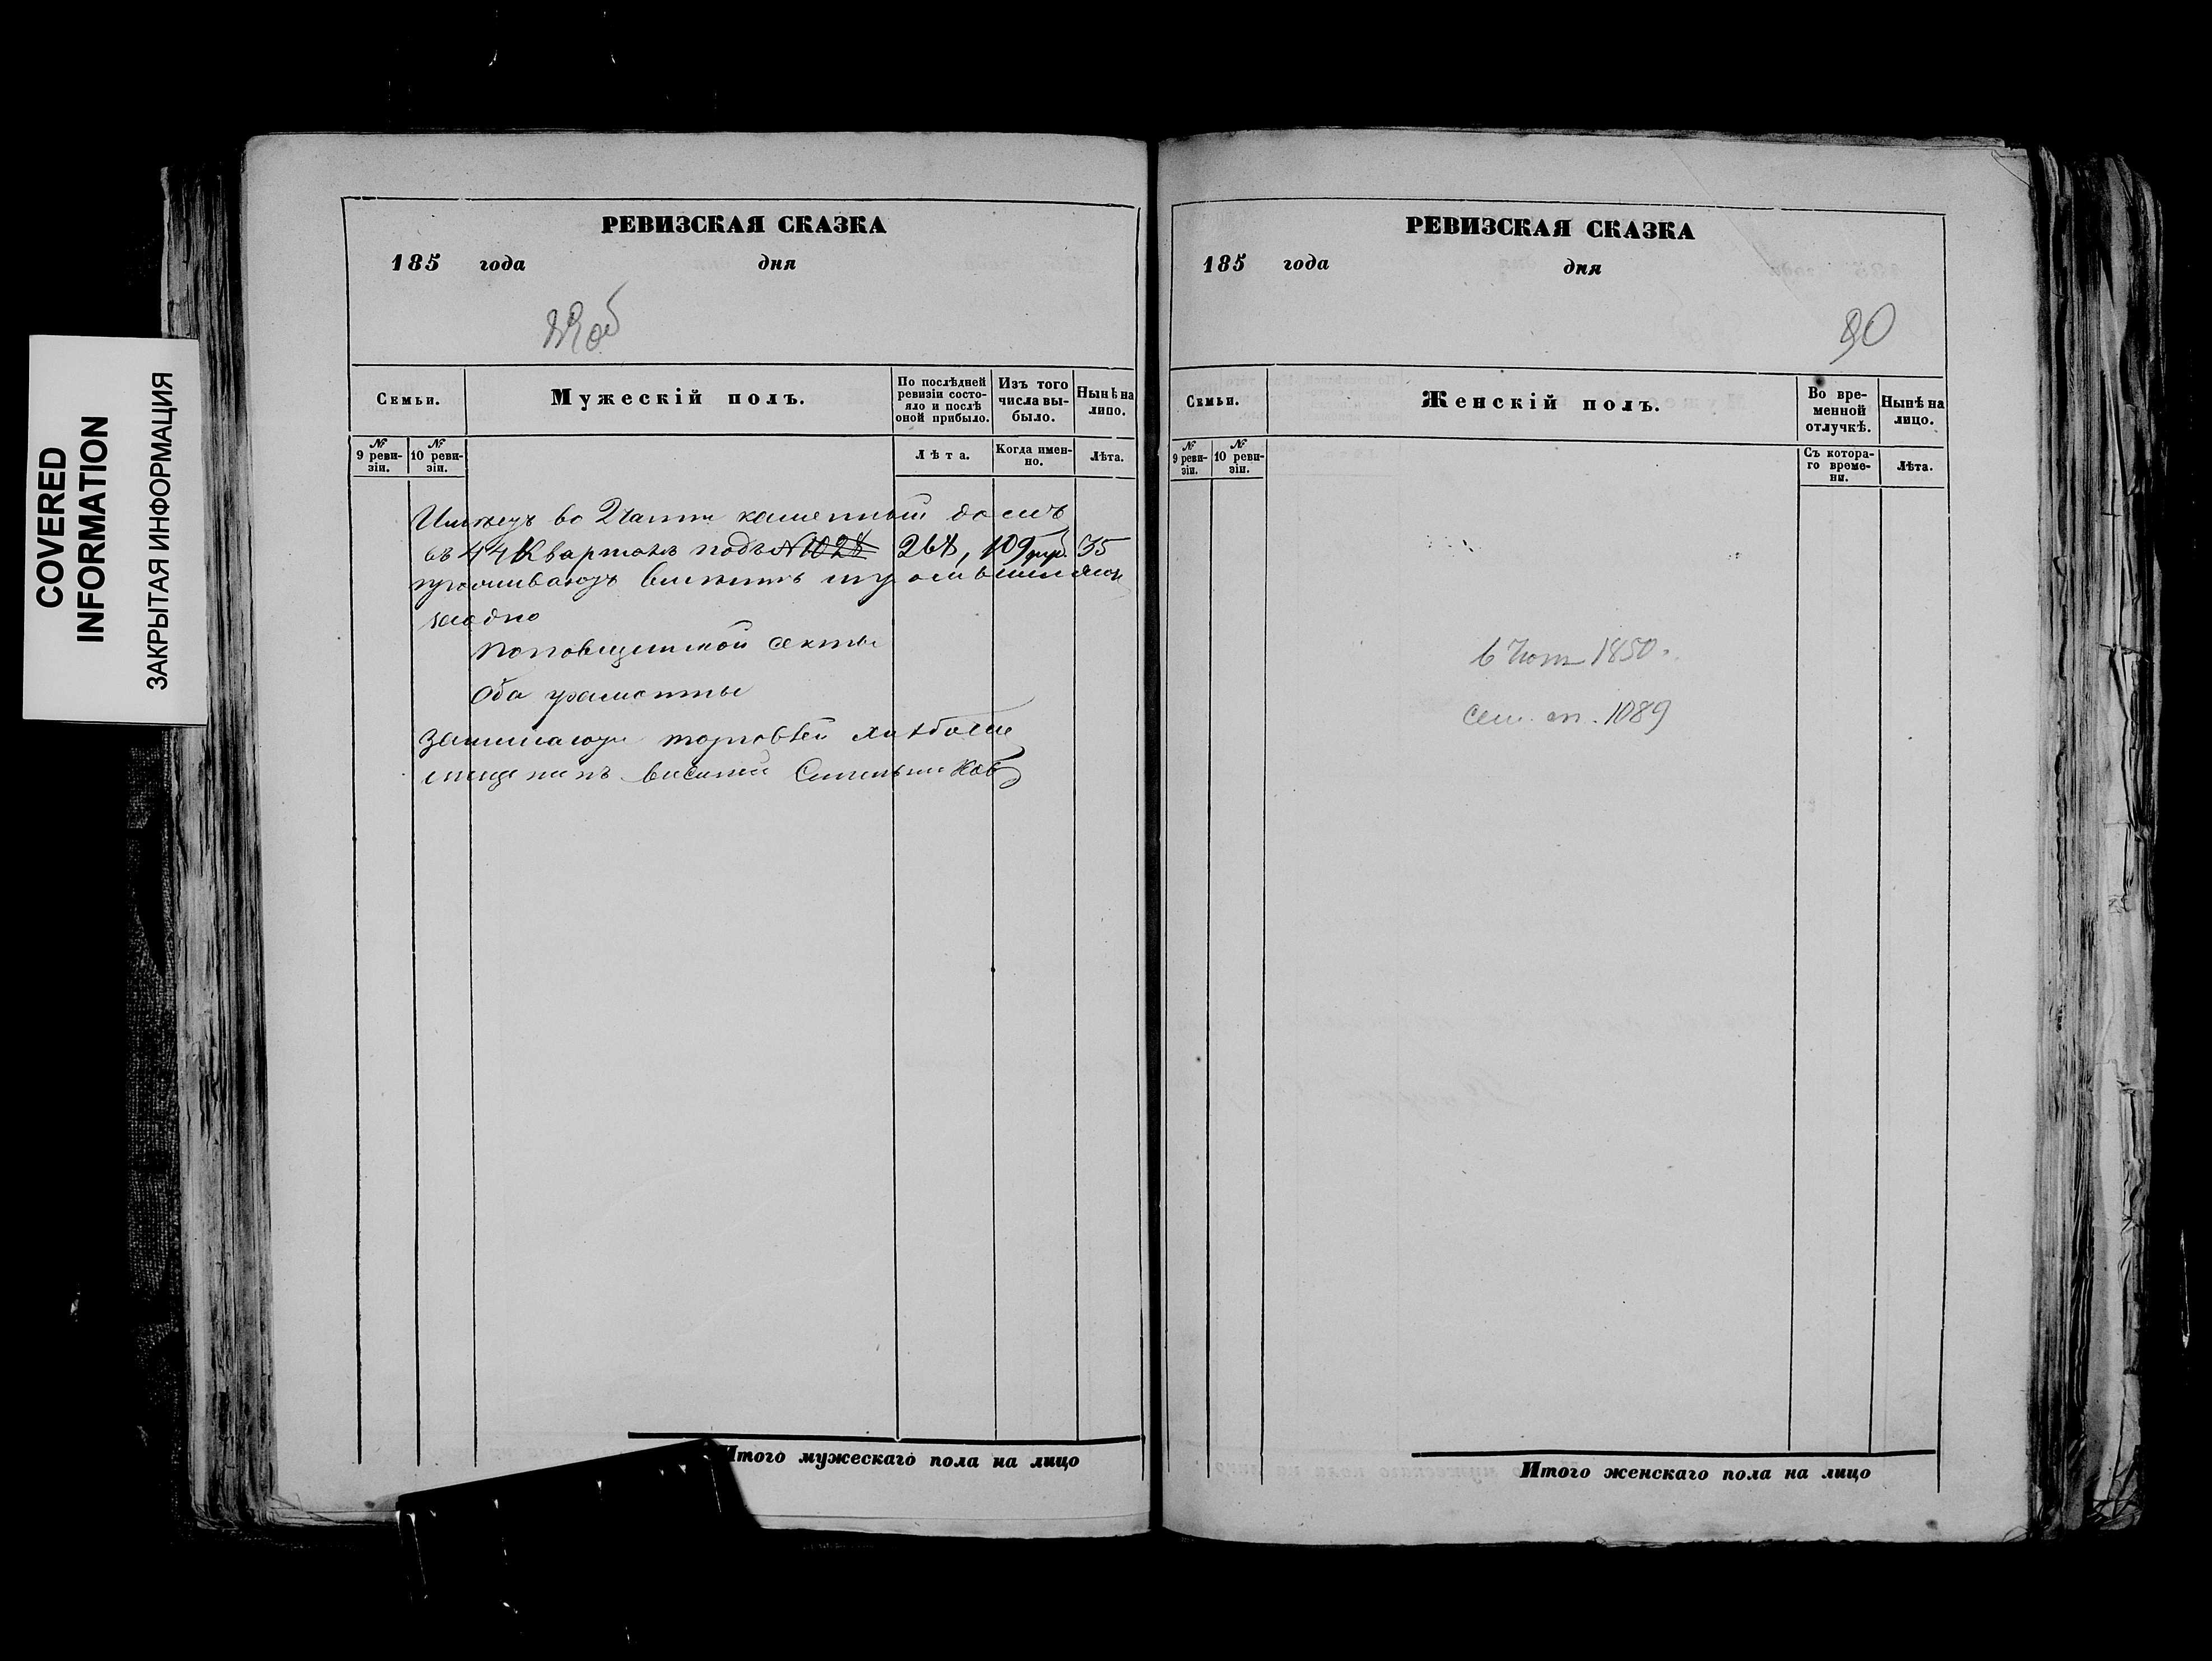 COVERED
INFORMATION
ЗАКРЫТАЯ ИНФОРМАЦИЯ
РЕВИЗСКАЯ СКАЗКА
185 года дня
Семьи.
Мужескій полъ.
По послѣдней ревизіи состояло и послѣ оной прибыло.
Изъ того числа выбыло.
Нынѣ на лицо.
№ 9 ревизіи.
№ 10 ревизіи.
Лѣта.
Когда именно.
Лѣта.
Имѣетъ во 2 части каменный домъ
въ 44 Кварталѣ подъ № 1028 268, 109 руб. 35
проживаютъ вмѣстѣ
заодно
Поповщинской секты
Оба грамотны
Занимаются торговлей хлѣбомъ
мѣщанинъ Василій
Итого мужескаго пола на лицо
РЕВИЗСКАЯ СКАЗКА
185 года дня
90
Семьи.
Женскій полъ.
Во временной отлучкѣ.
Нынѣ на лицо.
№ 9 ревизіи.
№ 10 ревизіи.
Съ котораго времени.
Лѣта.
6 1850.
сем. сп. 1089
Итого женскаго пола на лицо